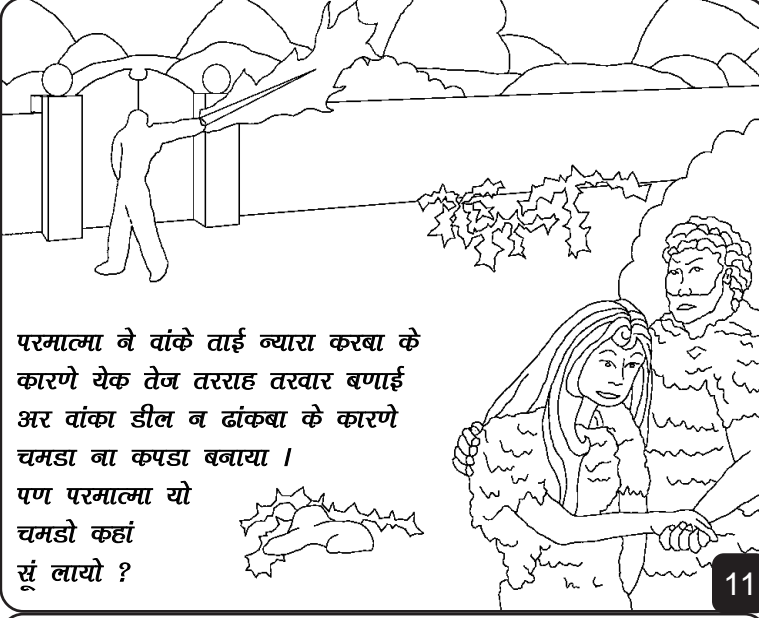 परमात्मा ने वांके ताई न्यारा करबा के
कारणे येक तेज तरराह तरवार बणाई
अर वांका डील न ढांकबा के कारणे
चमडा ना कपडा बनाया ।
पण परमात्मा यो
चमडो कहां
सूं लायो ?
11